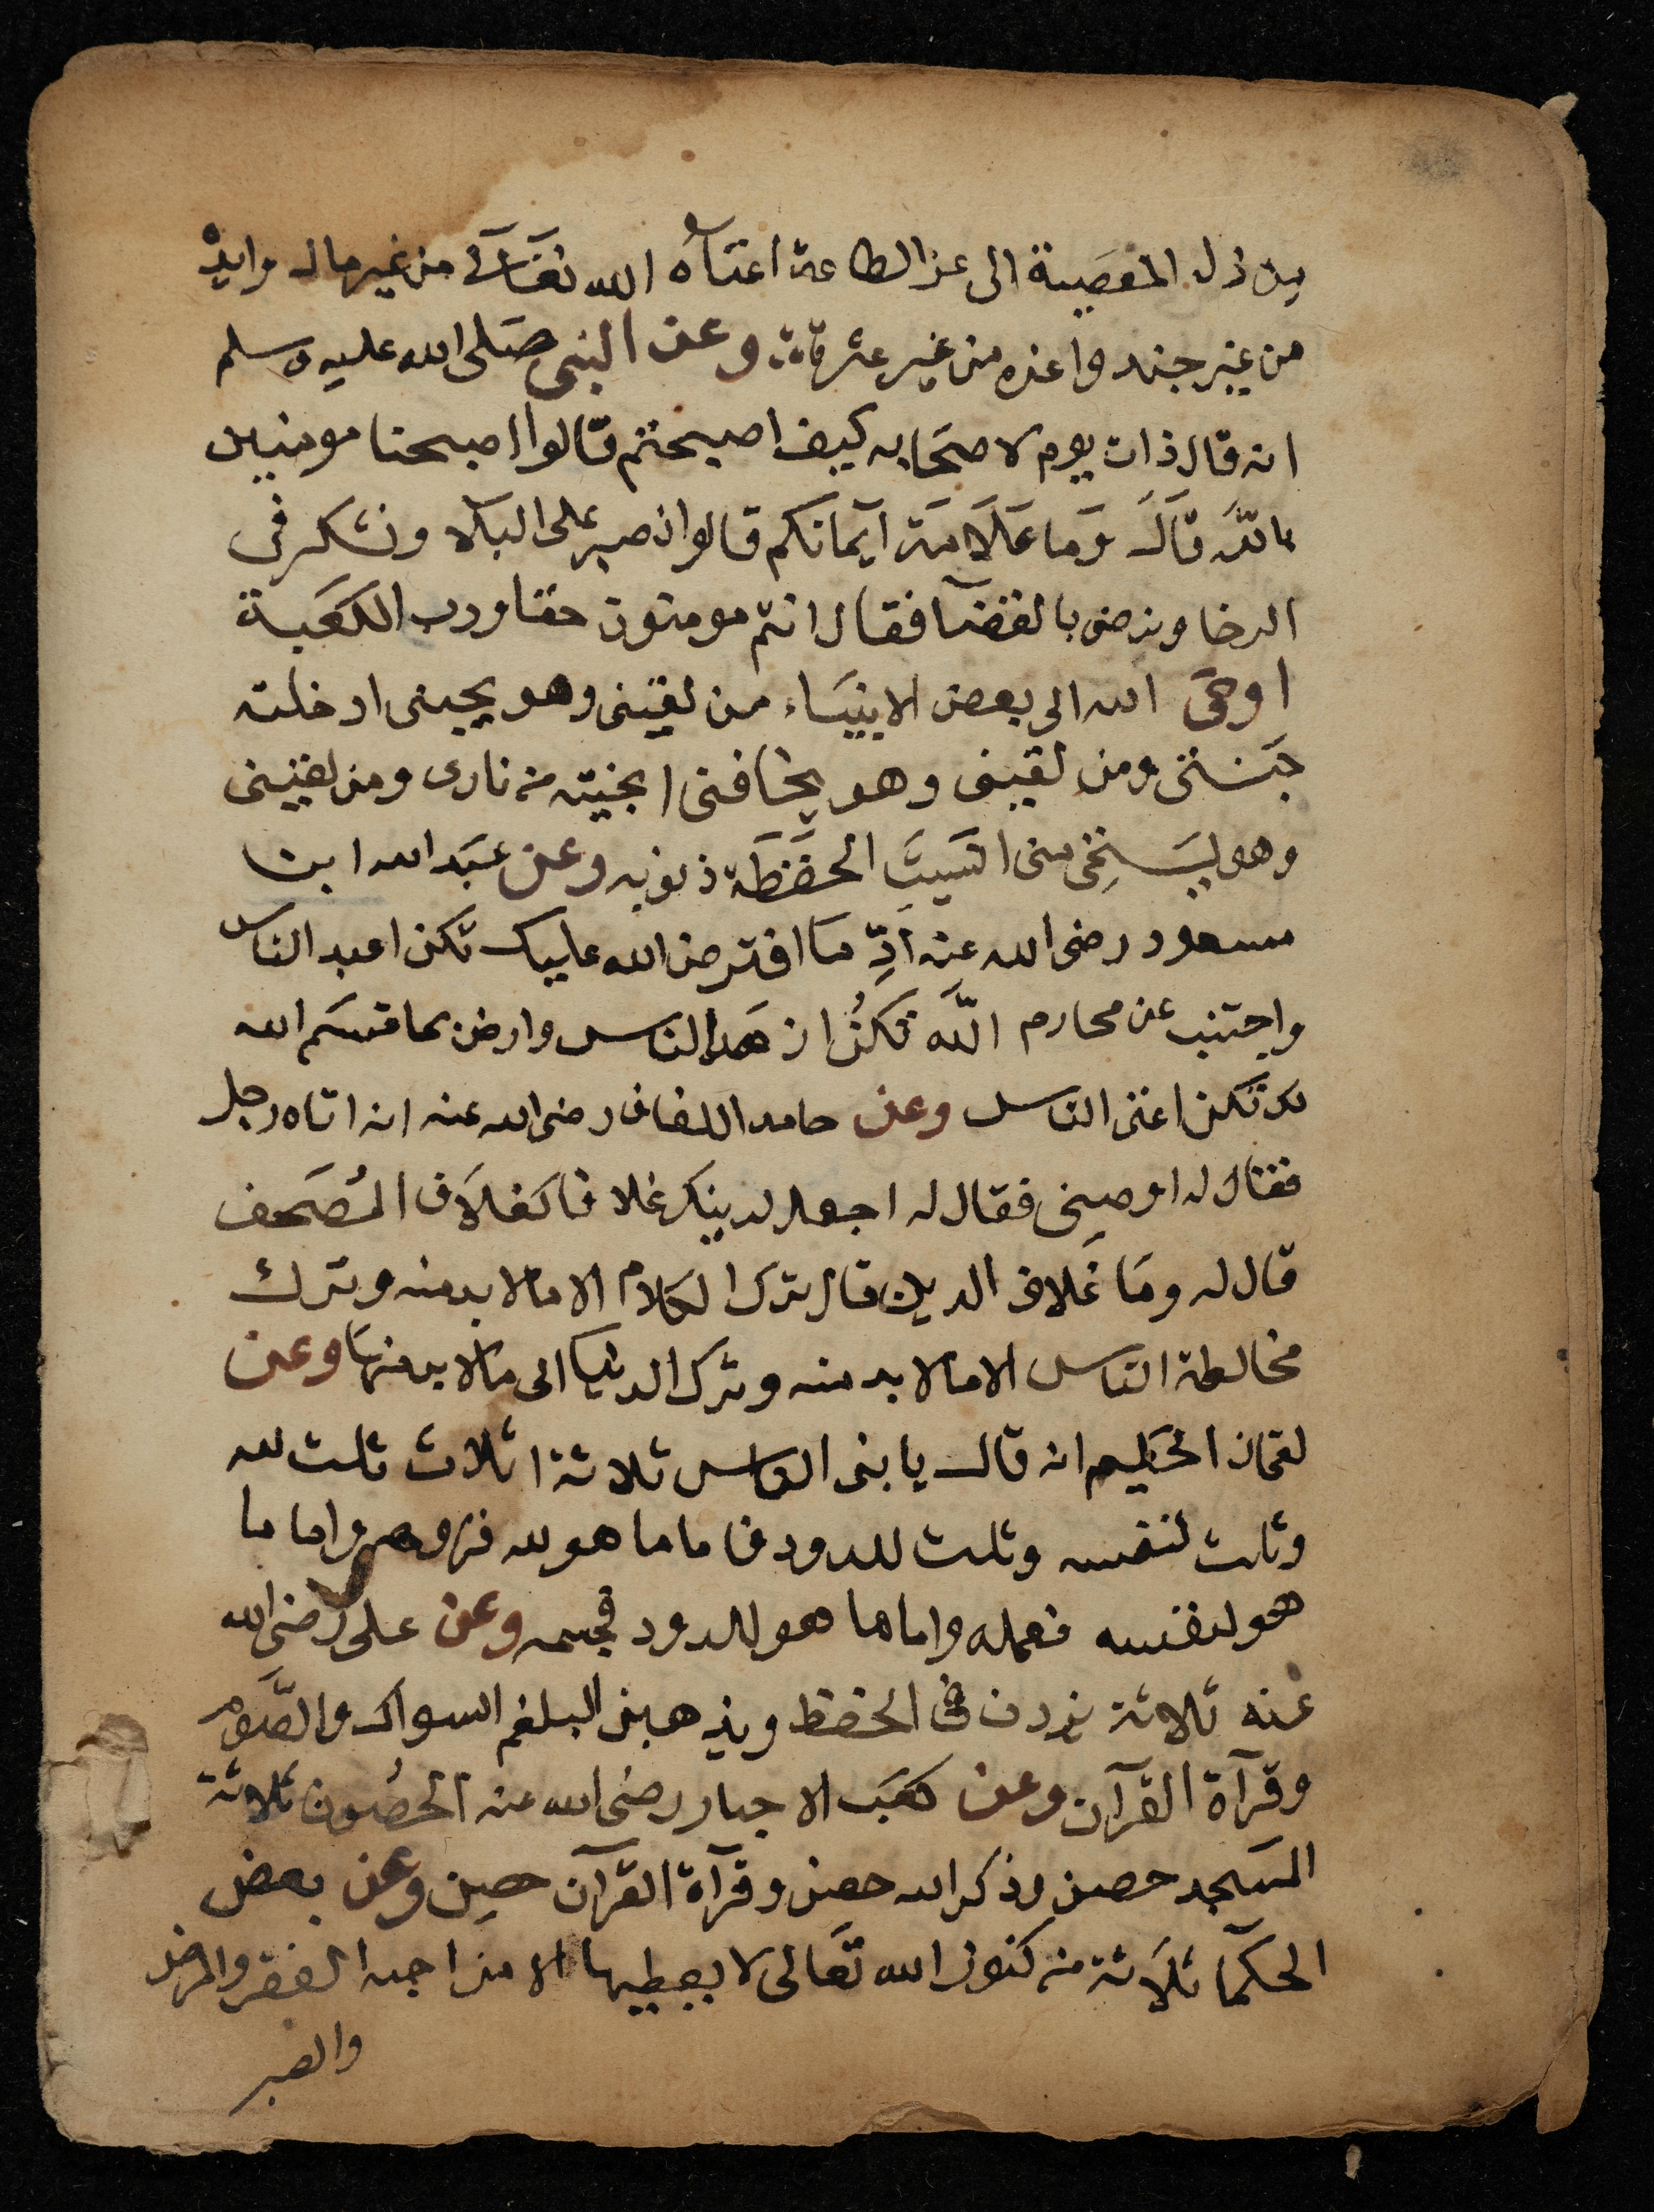 من ذل المعصية الى عز الطاعة اغناه الله تعالى من غير مال وايده
من غير جند واعزه من غير عشرة وعن النبى صلى الله عليه وسلم
انه قال ذات يوم لاصحابه كيف اصبحتم قالوا اصبحنا مومنين
بالله قال وما علامة آيمانكم قالوا نصبر على البلا ونشكر فى
الرخا ونرضى بالقضآ فقال انتم مومنون حقا ورب الكعبة
اوحى الله الى بعض الانبياء من لقينى وهو يحبنى ادخلته
جنتى ومن لقينى وهو يخافنى انجيته من نارى ومن لقينى
وهو يستحى منى انسيت الحفظة ذنوبه وعن عبد الله ابن
مسعود رضى الله عنه ادّ ما افترض الله عليك تكن اعبد الناس
واجتنب عن محارم الله تكن ازهد الناس وارض بما قسم الله
لك تكن اغنى الناس وعن حامد اللفاف رضى الله عنه انه اتاه رجل
فقال له اوصينى فقال له اجعل لدينك غلافا كغلاف المصحف
قال له وما غلاف الدين قال ترك الكلام الا مالا بد منه وترك
مخالطة الناس الا مالا بد منه وترك الدنيا الى مالا بد منها وعن
لقمان الحكيم انه قال يا بنى الناس ثلاثة اثلاث ثلث لله
وثلث لنفسه وثلث للدود فاما ما هو لله فروحه واما ما
هو لنفسه فعمله واما ما هو للدود فجسمه وعن على رضى الله
عنه ثلاثة يزدن فى الحفظ ويذهبن البلغم السواك والصوم
وقرآة القرآن وعن كعب الاحبار رضى الله عنه الحصون ثلاثة
المسجد حصن وذكر الله حصن وقرآة القرآن حصن وعن بعض
الحكما ثلاثة من كنوز الله تعالى لا يعطيها الا من احبه الفقر والمرض
والصبر